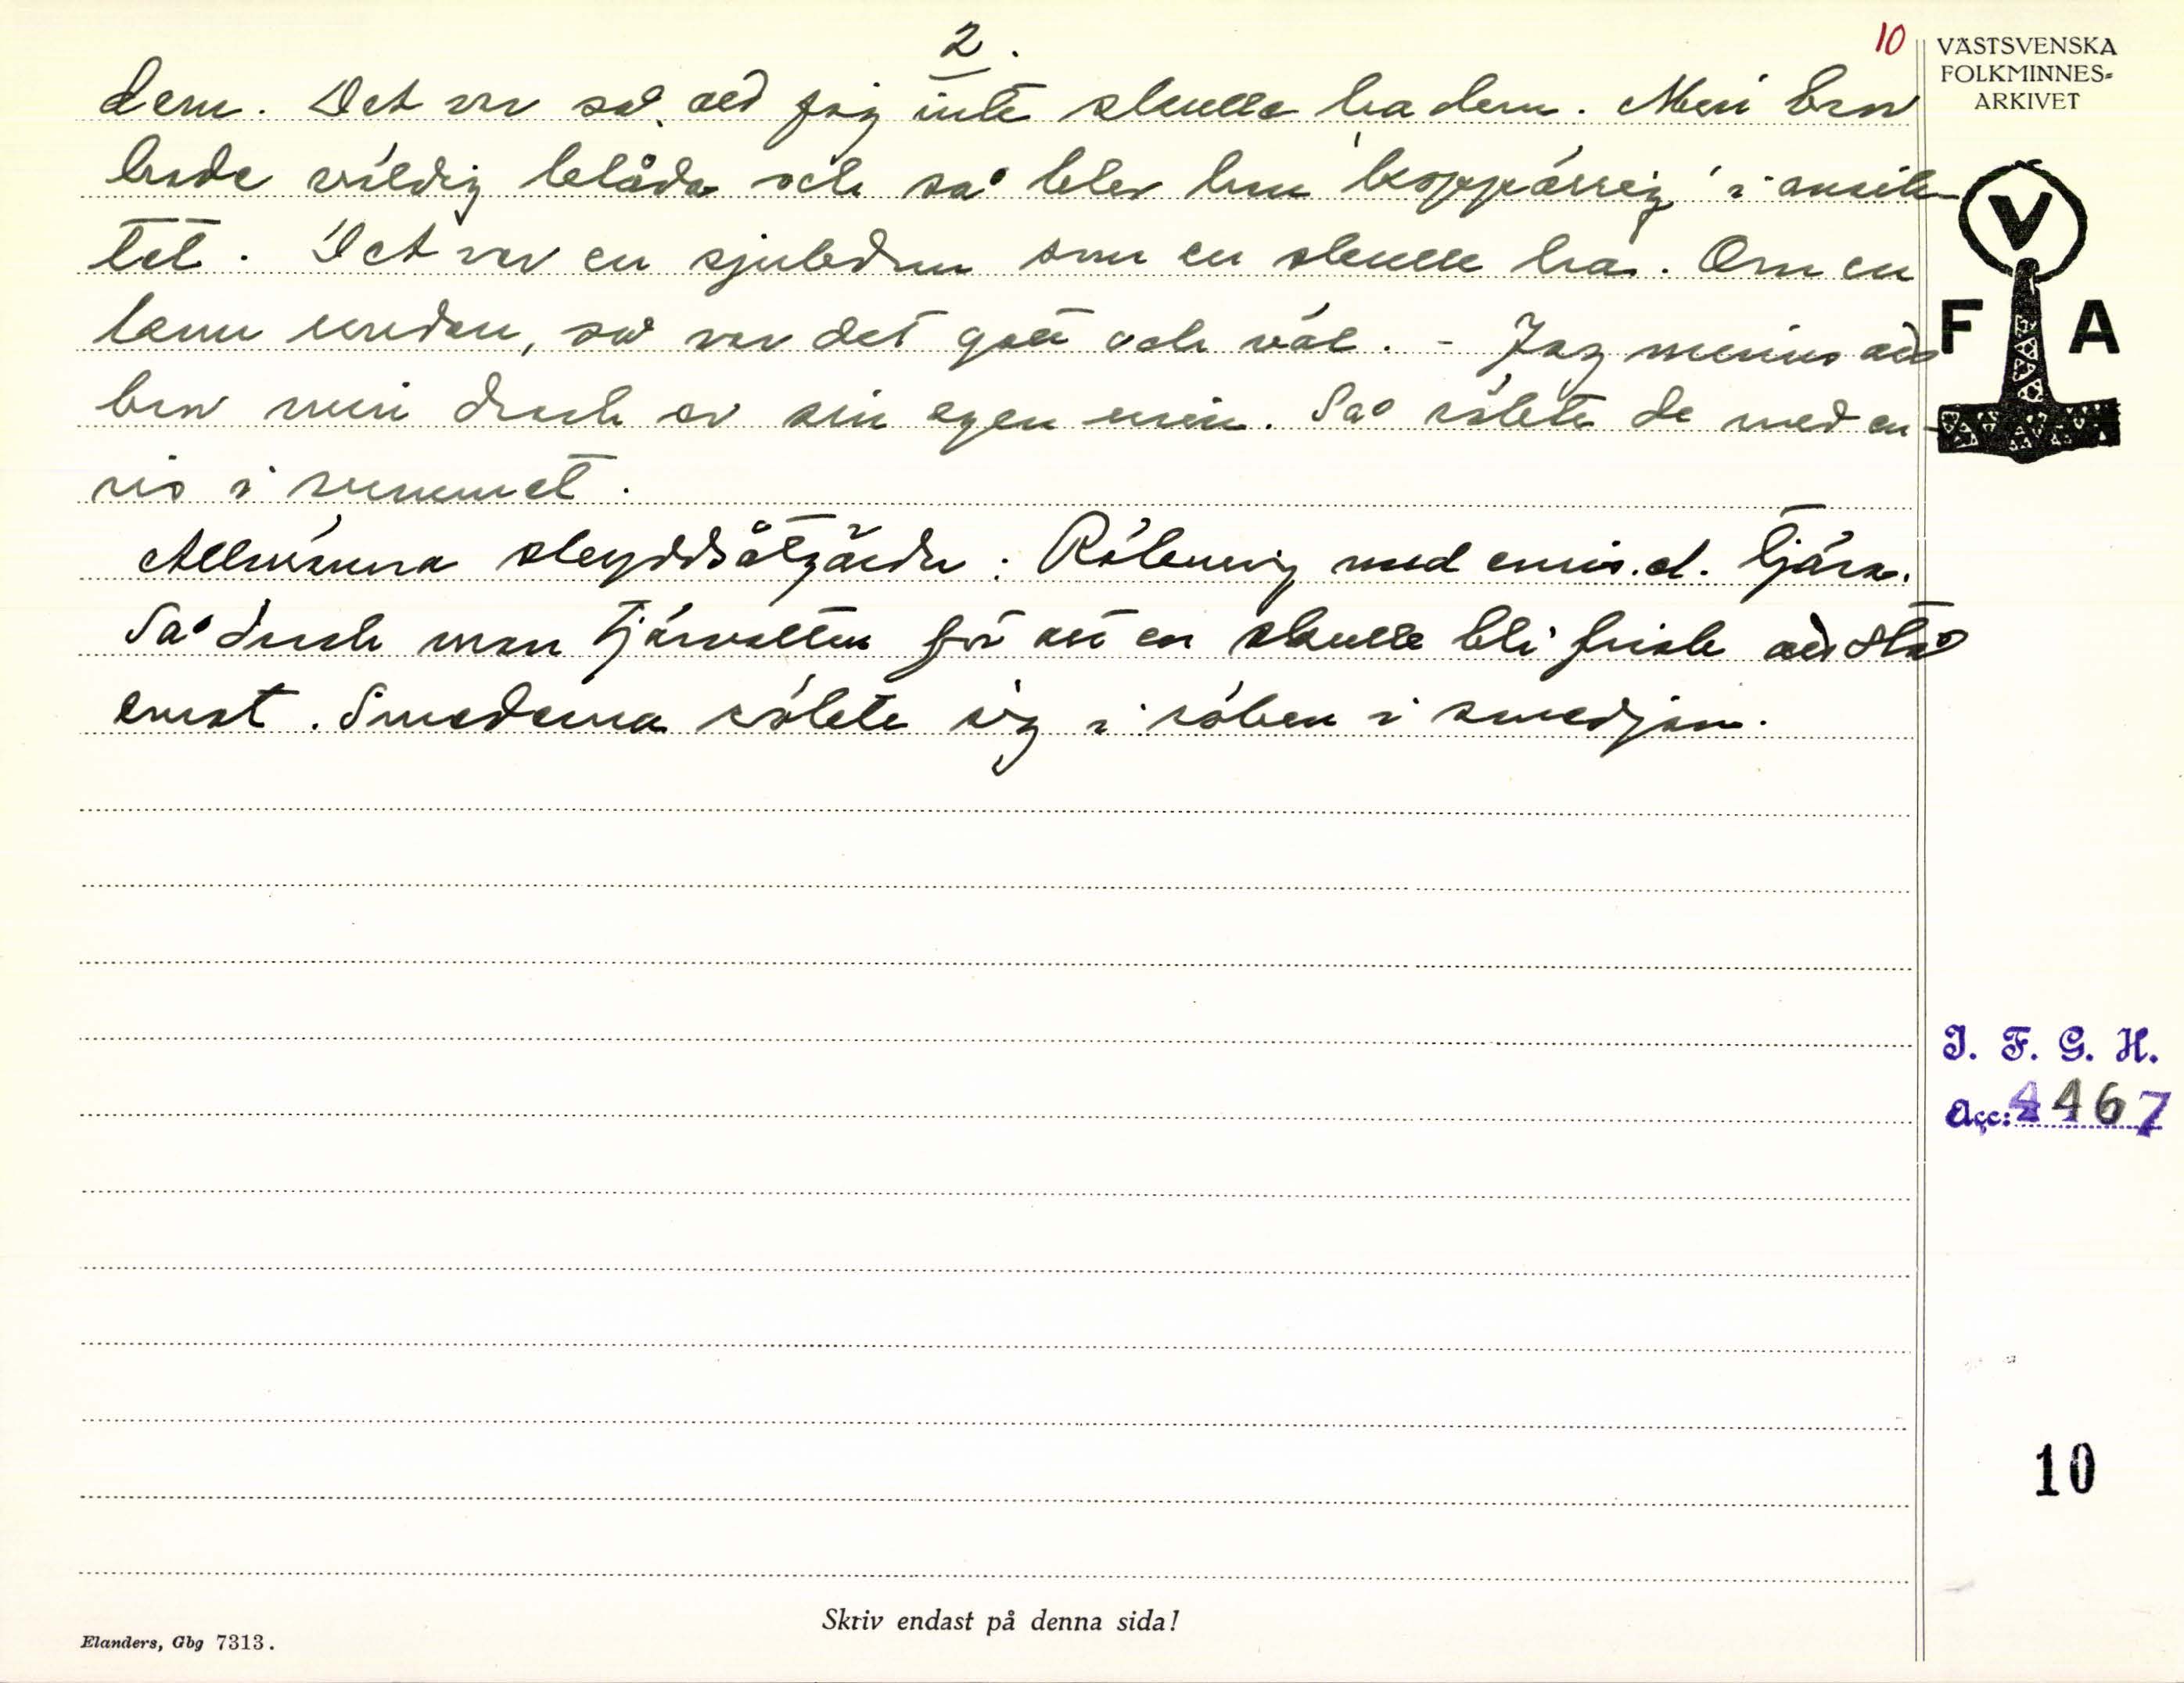 2.
10
VÄSTSVENSKA
FOLKMINNES=
ARKIVET
dem. Det var så att jag inte skulle ha dem. Men bror
hade väldig blåda och så blev han 'koppärrig' i ansik-
tet. Det var en sjukdom som en skulle ha. Om en
kom undan, så var det gott och väl. - Jag minns att
bror min drack av sin egen urin. Så rökte de med en-
ris i rummet.
Allmänna skyddsåtgärder: Rökning med enris. d. tjära.
Så drack man tjärvatten för att en skulle bli frisk att stå
emot. Smederna rökte sig i röken i smedjan.
V
F A
I. F. G. H.
Acc: 4467
10
Skriv endast på denna sida!
Elanders, Gbg 7313.